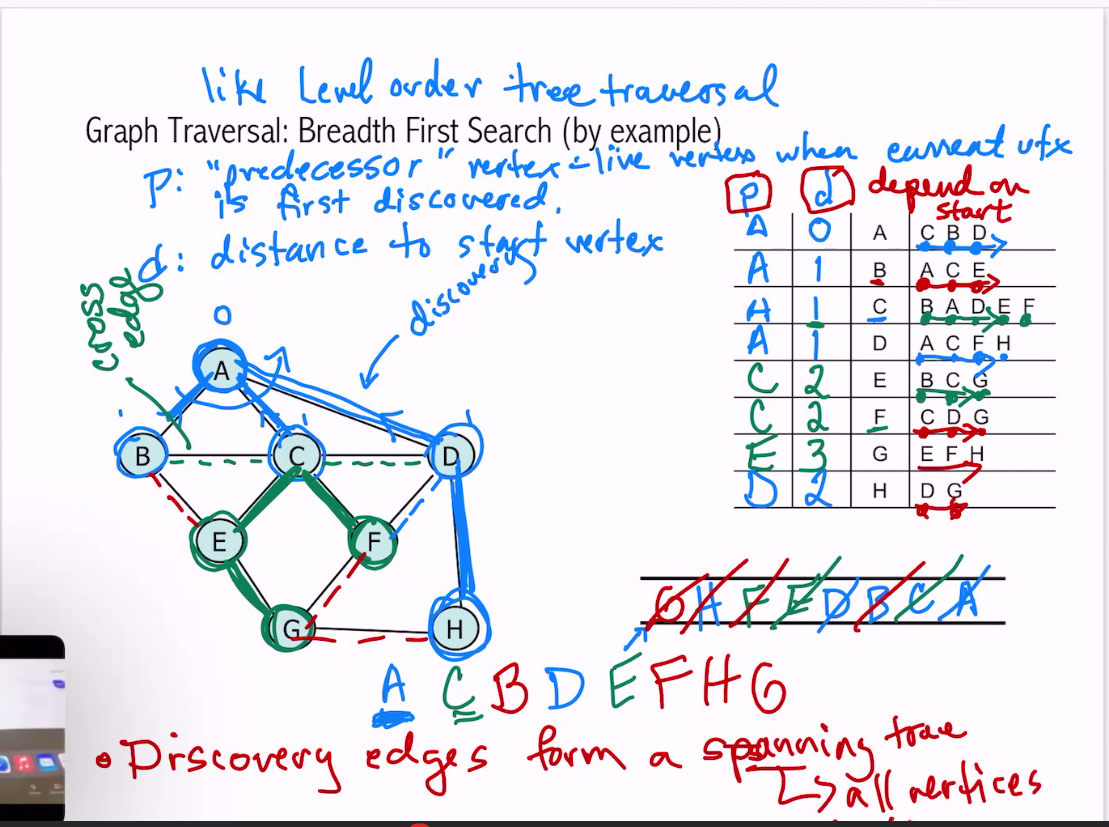 like Level order tree traversal
Graph Traversal: Breadth First Search (by example)
p: "predecessor" vertex = live vertex when current vtx
is first discovered.
d: distance to start vertex
discovery
cross
edge
p d depend on
start
A 0 A C B D
A 1 B A C E
A 1 C B A D E F
A 1 D A C F H
C 2 E B C G
C 2 F C D G
E 3 G E F H
D 2 H D G
0
A
1 1 1
B C D
E F
G H
G H F E D B C A
A C B D E F H G
• Discovery edges form a spanning tree
all vertices